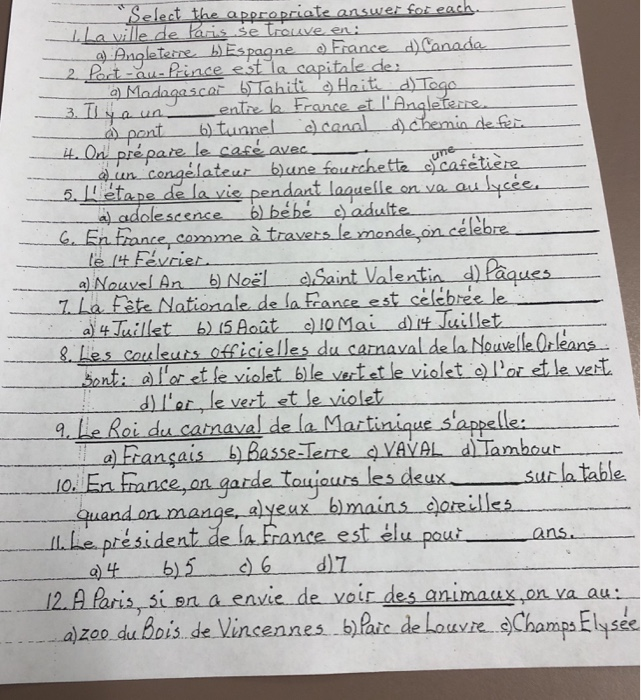 "Select the appropriate answer for each.
1. La ville de Paris se trouve en:
a) Angleterre b) Espagne c) France d) Canada
2. Port-au-Prince est la capitale de:
a) Madagascar b) Tahiti c) Haiti d) Togo
3. Il y a un ____ entre la France et l'Angleterre.
a) pont b) tunnel c) canal d) chemin de fer.
4. On prépare le café avec ____.
a) un congélateur b) une fourchette c) une cafétière
5. L'étape de la vie pendant laquelle on va au lycée.
a) adolescence b) bébé c) adulte
6. En France, comme à travers le monde, on célèbre ____
le 14 Février.
a) Nouvel An b) Noël c) Saint Valentin d) Pâques
7. La Fête Nationale de la France est célébrée le ____
a) 4 Juillet b) 15 Août c) 10 Mai d) 14 Juillet
8. Les couleurs officielles du carnaval de la Nouvelle Orléans
sont: a) l'or et le violet b) le vert et le violet c) l'or et le vert
d) l'or, le vert et le violet
9. Le Roi du carnaval de la Martinique s'appelle:
a) Français b) Basse-Terre c) VAVAL d) Tambour
10. En France, on garde toujours les deux ____ sur la table
quand on mange. a) yeux b) mains c) oreilles
11. Le président de la France est élu pour ____ ans.
a) 4 b) 5 c) 6 d) 7
12. A Paris, si on a envie de voir des animaux, on va au:
a) zoo du Bois de Vincennes b) Parc de Louvre c) Champs Elysée